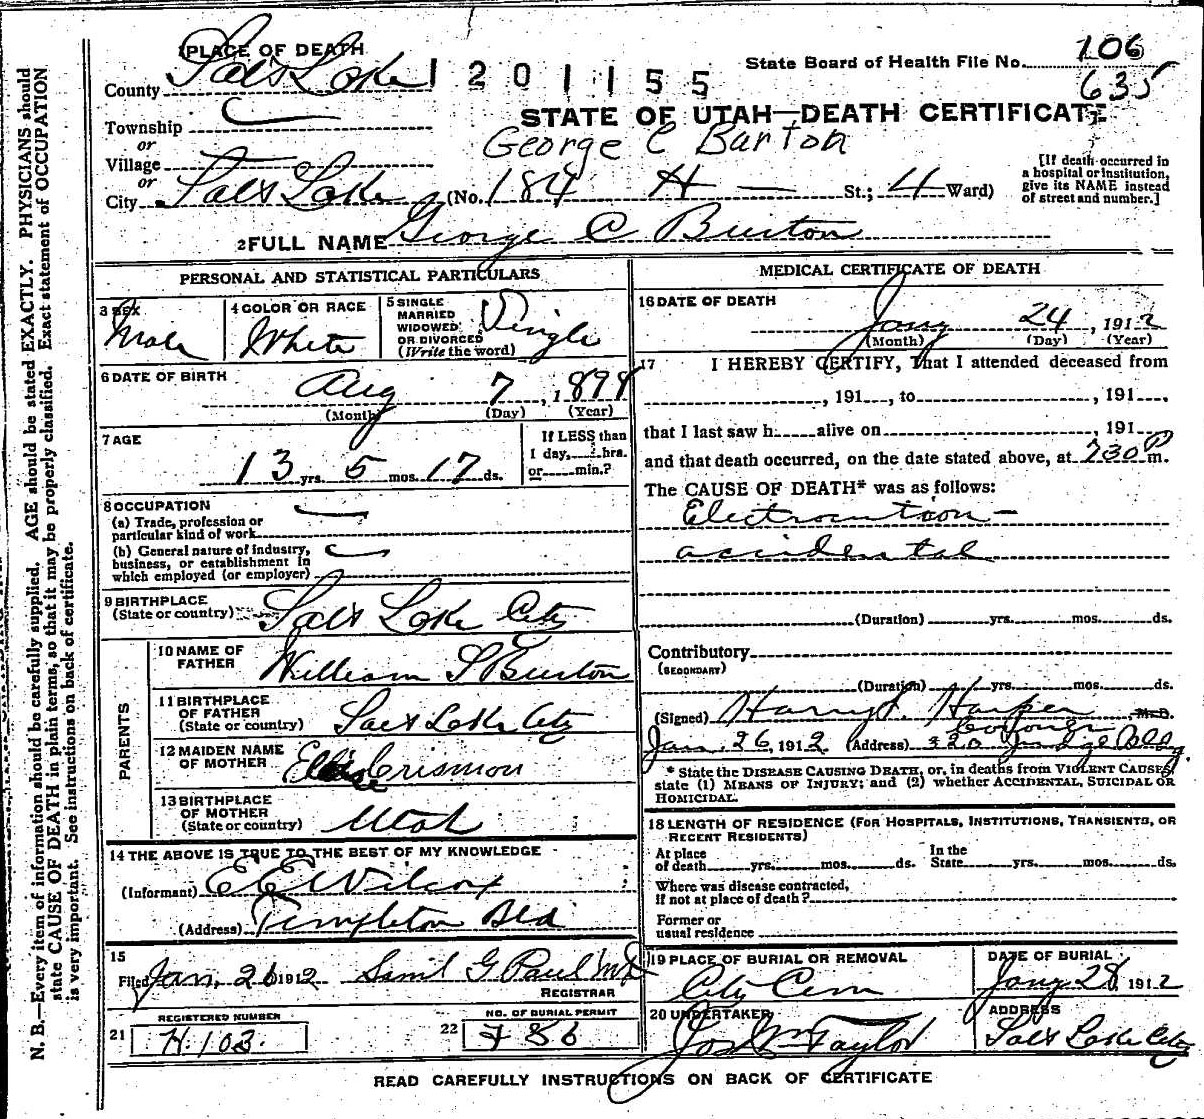 PLACE OF DEATH
County Salt Lake 1201155
State Board of Health File No. 106
635
STATE OF UTAH—DEATH CERTIFICATE
Township
or
Village
George C Barton
or
City Salt Lake (No. 184 H — St.; 4 Ward)
[If death occurred in
a hospital or institution,
give its NAME instead
of street and number.]
2 FULL NAME George C Burton
PERSONAL AND STATISTICAL PARTICULARS
3 SEX
Male
4 COLOR OR RACE
White
5 SINGLE
MARRIED
WIDOWED
OR DIVORCED
(Write the word)
Single
6 DATE OF BIRTH
Aug 7, 1898
(Month) (Day) (Year)
7 AGE
13 yrs. 5 mos. 17 ds.
If LESS than
1 day, hrs.
or min.?
8 OCCUPATION
(a) Trade, profession or
particular kind of work
(b) General nature of industry,
business, or establishment in
which employed (or employer)
9 BIRTHPLACE
(State or country) Salt Lake City
PARENTS
10 NAME OF
FATHER
William S Burton
11 BIRTHPLACE
OF FATHER
(State or country) Salt Lake City
12 MAIDEN NAME
OF MOTHER
Crismon
13 BIRTHPLACE
OF MOTHER
(State or country) Utah
14 THE ABOVE IS TRUE TO THE BEST OF MY KNOWLEDGE
(Informant) E E Wilcox
(Address) Templeton Bld
15
Filed Jan, 26 1912 Saml G Paul MD
REGISTRAR
21 REGISTERED NUMBER
H.103.
22 NO. OF BURIAL PERMIT
786
MEDICAL CERTIFICATE OF DEATH
16 DATE OF DEATH
Jany 24, 1912
(Month) (Day) (Year)
17 I HEREBY CERTIFY, That I attended deceased from
, 191 , to , 191 ,
that I last saw h alive on , 191
and that death occurred, on the date stated above, at 730 P m.
The CAUSE OF DEATH* was as follows:
Electrocution —
accidental
(Duration) yrs. mos. ds.
Contributory
(SECONDARY)
(Duration) yrs. mos. ds.
(Signed) Harry S. Harper M.D.
Coroner
Jan. 26, 1912 (Address) 320 Judge Bldg.
* State the DISEASE CAUSING DEATH, or, in deaths from VIOLENT CAUSES,
state (1) MEANS OF INJURY; and (2) whether ACCIDENTAL, SUICIDAL OR
HOMICIDAL.
18 LENGTH OF RESIDENCE (FOR HOSPITALS, INSTITUTIONS, TRANSIENTS, OR
RECENT RESIDENTS)
At place
of death yrs. mos. ds.
In the
State yrs. mos. ds.
Where was disease contracted,
if not at place of death?
Former or
usual residence
19 PLACE OF BURIAL OR REMOVAL
City Cem
DATE OF BURIAL
Jany 28, 1912
20 UNDERTAKER
Jos Wm Taylor
ADDRESS
Salt Lake City
READ CAREFULLY INSTRUCTIONS ON BACK OF CERTIFICATE
N. B.—Every item of information should be carefully supplied. AGE should be stated EXACTLY. PHYSICIANS should
state CAUSE OF DEATH in plain terms, so that it may be properly classified. Exact statement of OCCUPATION
is very important. See instructions on back of certificate.